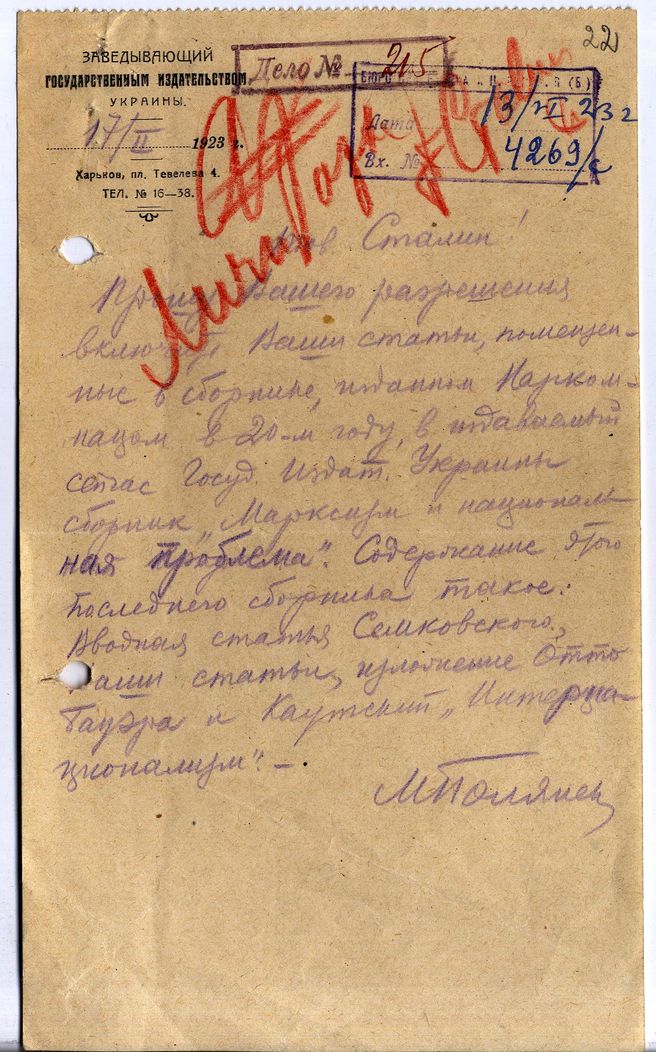 22
ЗАВЕДЫВАЮЩИЙ
ГОСУДАРСТВЕННЫМ ИЗДАТЕЛЬСТВОМ
УКРАИНЫ.
17/II 1923 г.
Харьков, пл. Тевелева 4.
ТЕЛ. № 16—38.
Дело № 215
БЮРО
Дата 13/VI 23 г
Вх. № 4269/с
Тов Сталин!
Прошу Вашего разрешения
включить Ваши статьи, помещен-
ные в сборнике, изданном Нарком-
нацом в 20-м году, в издаваемый
сейчас Госуд. Издат. Украины
сборник „Марксизм и националь-
ная проблема". Содержание этого
последнего сборника такое:
Вводная статья Семковского,
Ваши статьи, изложение Отто
Бауэра и Каутский „Интерна-
ционализм". —